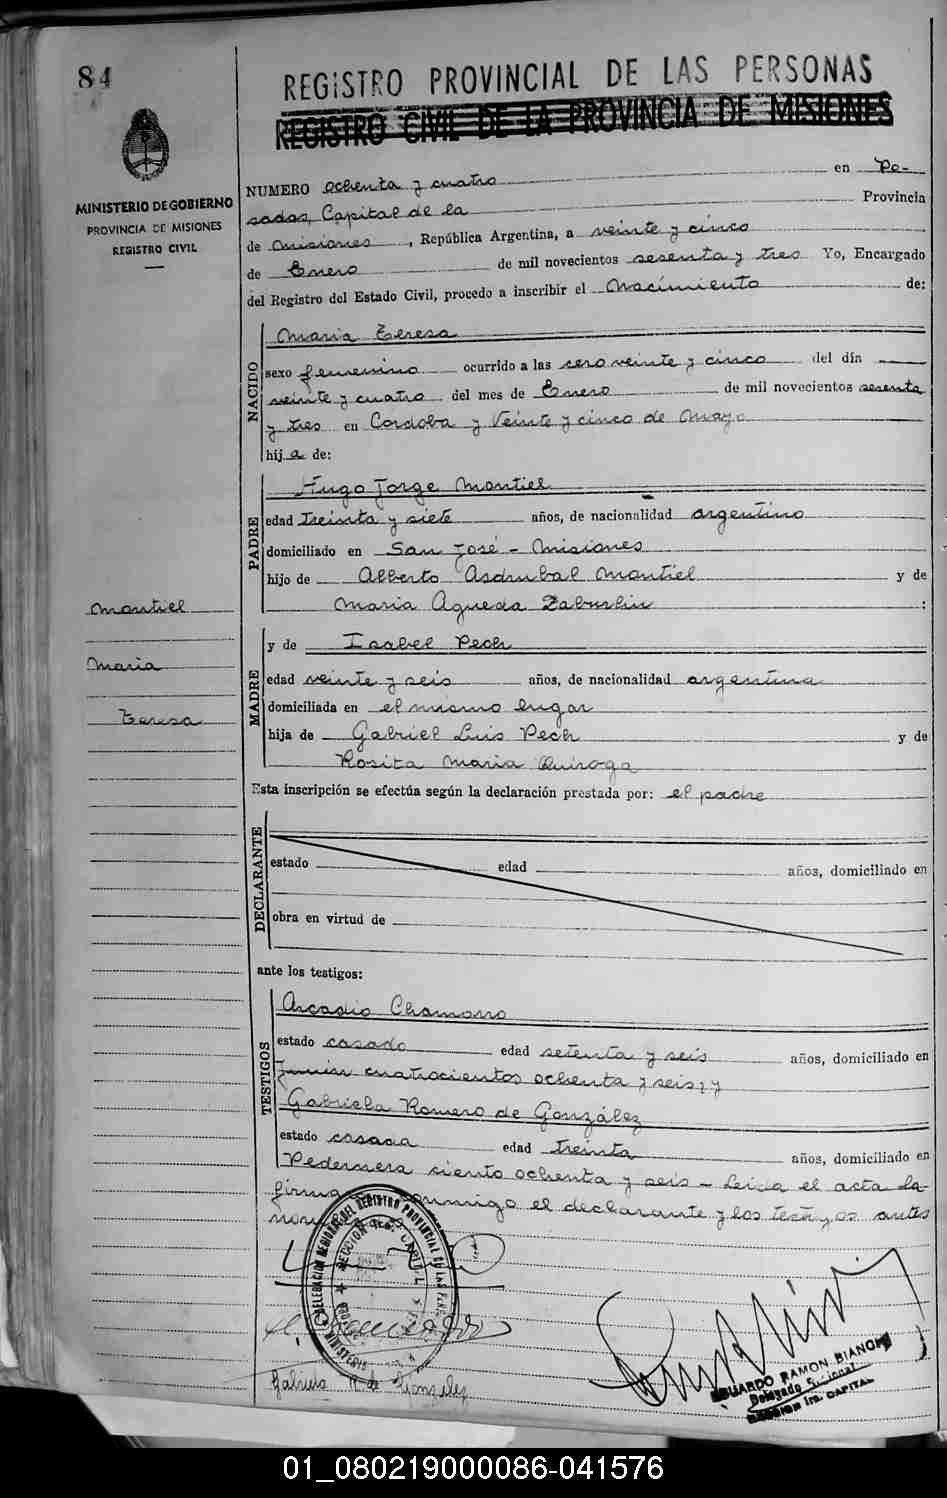 84
REGISTRO PROVINCIAL DE LAS PERSONAS
REGISTRO CIVIL DE LA PROVINCIA DE MISIONES
MINISTERIO DE GOBIERNO
PROVINCIA DE MISIONES
REGISTRO CIVIL
NUMERO ochenta y cuatro en Po-
sadas, Capital de la Provincia
de Misiones, República Argentina, a veinte y cinco
de Enero de mil novecientos sesenta y tres Yo, Encargado
del Registro del Estado Civil, procedo a inscribir el Nacimiento de:
NACIDO
Maria Teresa
sexo femenino ocurrido a las cero veinte y cinco del día
veinte y cuatro del mes de Enero de mil novecientos sesenta
y tres en Cordoba y Veinte y cinco de Mayo
hija de:
PADRE
Hugo Jorge Montiel
edad Treinta y siete años, de nacionalidad argentino
domiciliado en San José - Misiones
hijo de Alberto Asdrubal Montiel y de
Maria Agueda Zaburlin :
Montiel
Maria
Teresa
MADRE
y de Isabel Pech
edad veinte y seis años, de nacionalidad argentina
domiciliada en el mismo lugar
hija de Gabriel Luis Pech y de
Rosita Maria Quiroga
Esta inscripción se efectúa según la declaración prestada por: el padre
DECLARANTE
estado edad años, domiciliado en
obra en virtud de
ante los testigos:
TESTIGOS
Arcadio Chamorro
estado casado edad setenta y seis años, domiciliado en
Junin cuatrocientos ochenta y seis, y
Gabriela Romero de González
estado casada edad Treinta años, domiciliado en
Pedernera siento ochenta y seis - Leida el acta la
firma conmigo el declarante y los testigos antes
DELEGACION REGIONAL DEL REGISTRO PROVINCIAL DE LAS PERS.
SECCION 1ra. CAPITAL
MINISTERIO
Gabriela R. de González
EDUARDO RAMON BIANCHI
Delegado Seccional
SECCION 1ra. CAPITAL
01_080219000086-041576